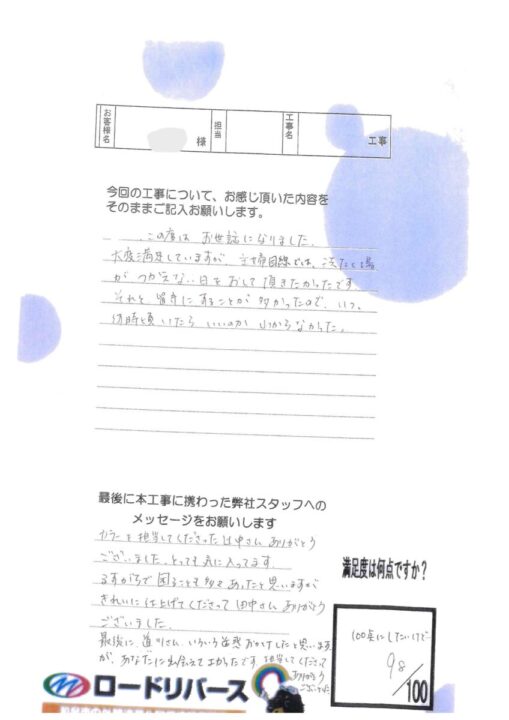 お客様名
様
担当
工事名
工事
今回の工事について、お感じ頂いた内容を
そのままご記入お願いします。
この度は お世話になりました。
大変満足していますが、主婦目線では、洗たく場
がつかえない日をおしえて頂きたかったです
それと 留守にすることが多かったので、いつ、
何時頃いたら いいのか わからなかった。
最後に本工事に携わった弊社スタッフへの
メッセージをお願いします
カラーを担当してくださった 田中さん ありがとう
ございました。とっても気に入ってます
るすがちで困ることも多々あったと思いますが
きれいに仕上げてくださって 田中さん ありがとう
ございました。
最後に、道川さん、いろいろ迷惑おかけしたと思います
が、あなたに出会えてよかったです 担当してくださって
ありがとう
ございました
満足度は何点ですか?
100点にしたいけど…
98
/100
ロードリバース